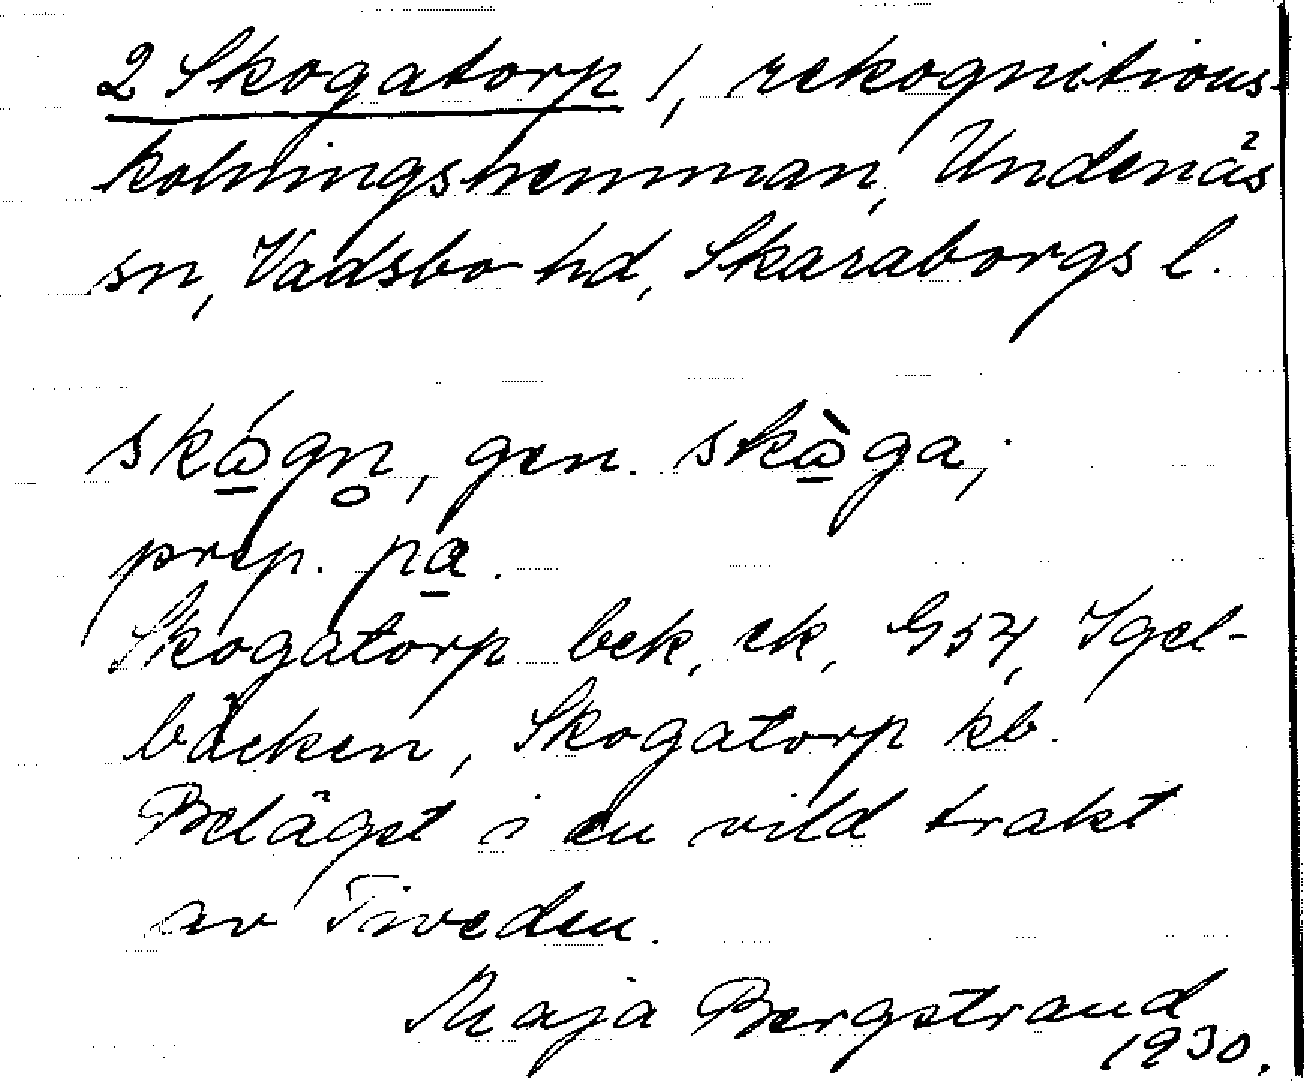 2 Skogatorp /, rekognitions-
kolningshemman, Undenäs
sn, Vadsbo hd, Skaraborgs l.
skǻgn̥, gen. skå̀ga,
prep. pa.
Skogatorp bek, ek, G54, Igel-
bäcken, Skogatorp kb.
Beläget i en vild trakt
av Tiveden.
Maja Bergstrand
1930.